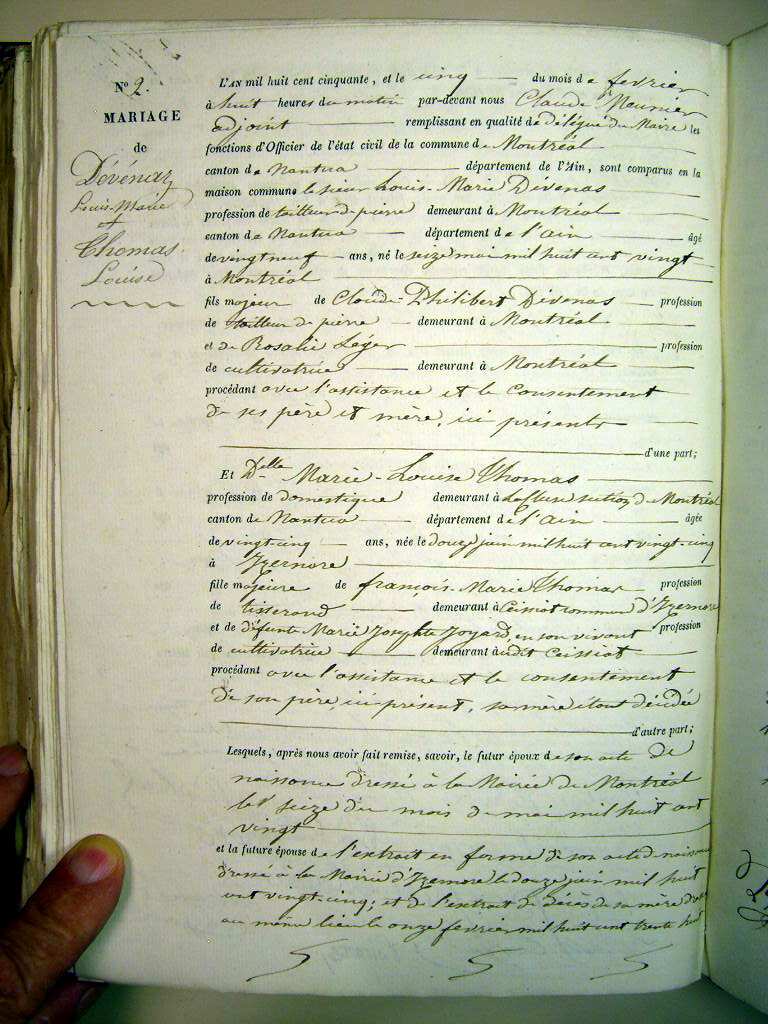 Nº 2.
MARIAGE
de
Dévénas
Louis-Marie
et
Thomas
Louise
L'AN mil huit cent cinquante, et le cinq du mois de février
à huit heures du matin par-devant nous Claude Meunier
adjoint remplissant en qualité de délégué du Maire les
fonctions d'Officier de l'état civil de la commune de Montréal
canton de Nantua département de l'Ain, sont comparus en la
maison commune le sieur Louis-Marie Dévenas
profession de tailleur de pierre demeurant à Montréal
canton de Nantua département de l'ain âgé
de vingt neuf ans, né le seize mai mil huit cent vingt
à Montréal
fils majeur de Claude-Philibert Dévenas profession
de tailleur de pierre demeurant à Montréal
et de Rosalie Léger profession
de cultivatrice demeurant à Montréal
procédant avec l'assistance et le consentement
de ses père et mère, ici présents
d'une part;
Et Delle Marie-Louise Thomas
profession de domestique demeurant à section de Montréal
canton de Nantua département de l'ain âgée
de vingt-cinq ans, née le douze juin mil huit cent vingt-cinq
à Izernore
fille majeure de françois-Marie Thomas profession
de tisserand demeurant à Ceissiat commune d'Izernore
et de défunte Marie Josephte Joyard, en son vivant profession
de cultivatrice demeurant audit Ceissiat
procédant avec l'assistance et le consentement
de son père, ici présent, sa mère étant décédée
d'autre part;
Lesquels, après nous avoir fait remise, savoir, le futur époux de son acte de
naissance dressé à la Mairie de Montréal
le seize du mois de mai mil huit cent
vingt
et la future épouse de l'extrait en forme de son acte de naissance
dressé à la Mairie d'Izernore le douze juin mil huit
cent vingt-cinq; et de l'extrait de décès de sa mère
au même lieu le onze février mil huit cent trente huit